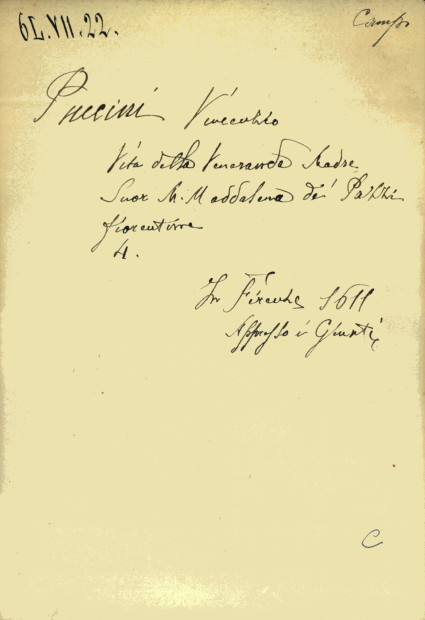 6L.VII.22.
Camp.
Puccini Vincenzio
Vita della Veneranda Madre
Suor M. Maddalena de' Pazzi
fiorentina
4.
In Firenze 1611
Appresso i Giunti
C